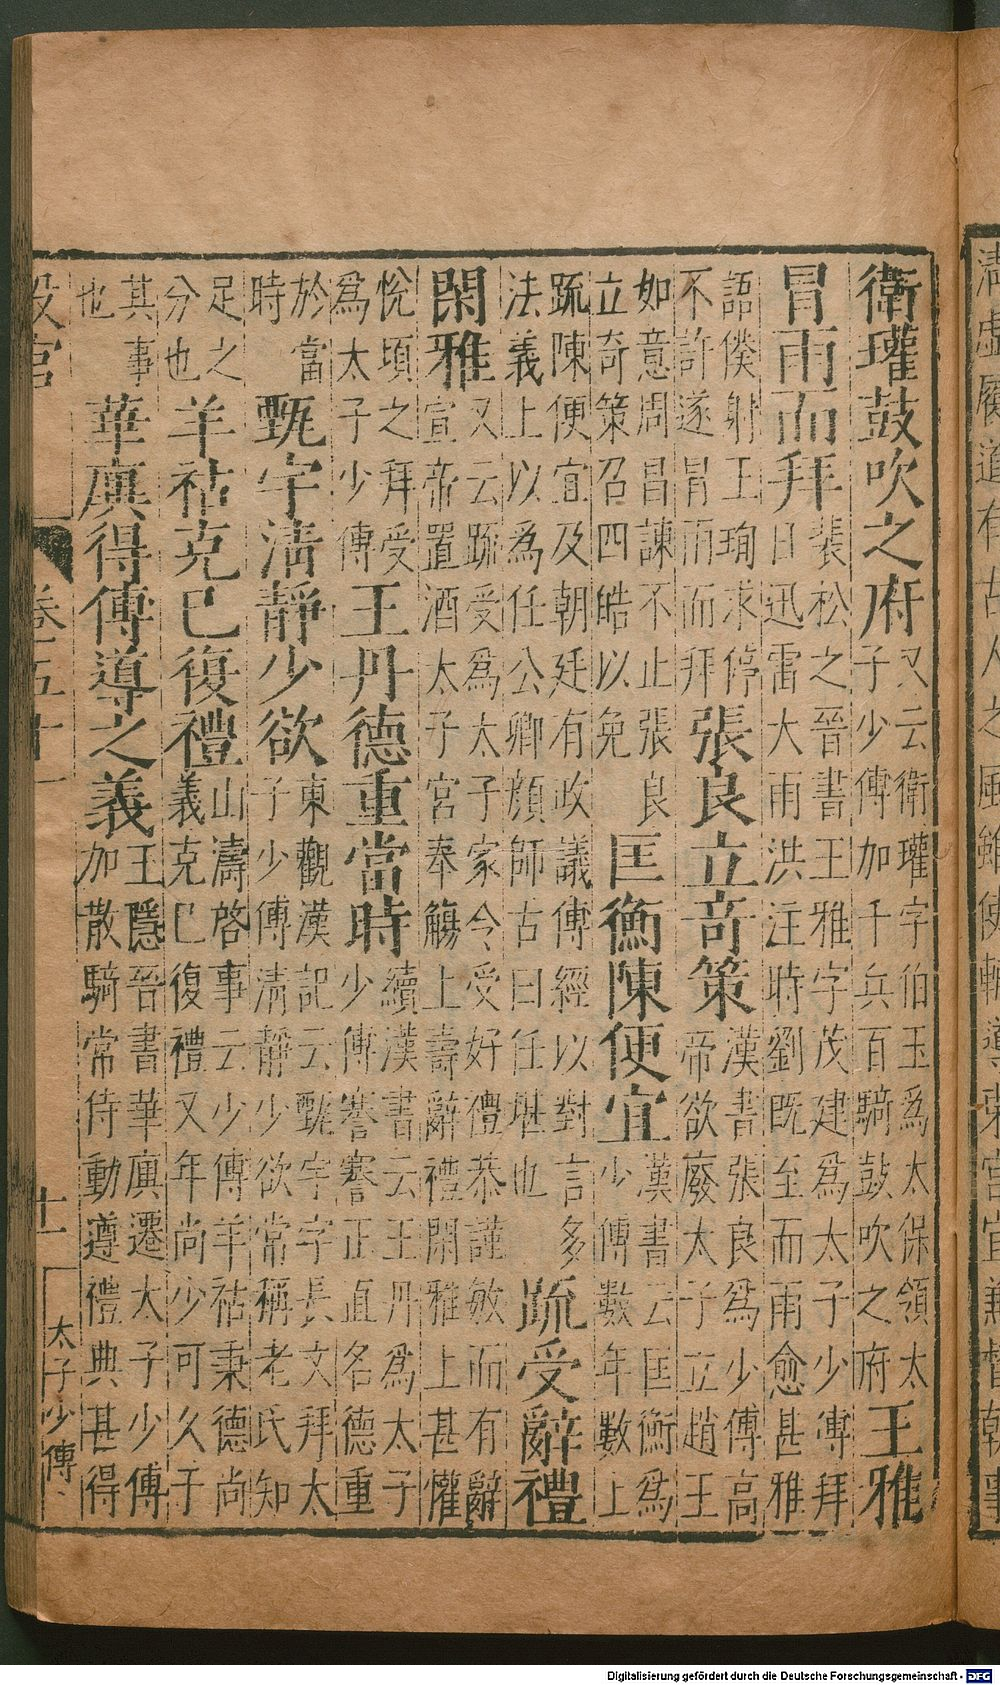 清虛履道有古人之風雖使輔導東宮宜兼督朝事
衛瓘鼓吹之府
又云衛瓘字伯玉為太保領太
子少傅加千兵百騎鼓吹之府
王雅
冒雨而拜
裴松之晉書王雅字茂建為太子少傅拜
日迅雷大雨洪注時劉既至而雨愈甚雅
語僕射王珣求停
不許遂冒雨而拜
張良立奇策
漢書張良為少傅高
帝欲廢太子立趙王
如意周昌諫不止張良
立奇策召四皓以免
匡衡陳便宜
漢書云匡衡為
少傅數年數上
疏陳便宜及朝廷有政議傅經以對言多
法義上以為任公卿顏師古曰任堪也
疏受辭禮
閑雅
又云疏受為太子家令受好禮恭謹敏而有辭
宣帝置酒太子宮奉觴上壽辭禮閑雅上甚懽
悅頃之拜受
為太子少傅
王丹德重當時
續漢書云王丹為太子
少傅謇謇正直名德重
於當
時
甄宇清靜少欲
東觀漢記云甄宇字長文拜太
子少傅清靜少欲常稱老氏知
足之
分也
羊祜克已復禮
山濤啓事云少傅羊祜秉德尚
義克已復禮又年尚少可久于
其事
也
華廙得傅導之義
王隱晉書華廙遷太子少傅
加散騎常侍動遵禮典甚得
設官
卷五十一
十一
太子少傅
Digitalisierung gefördert durch die Deutsche Forschungsgemeinschaft - DFG